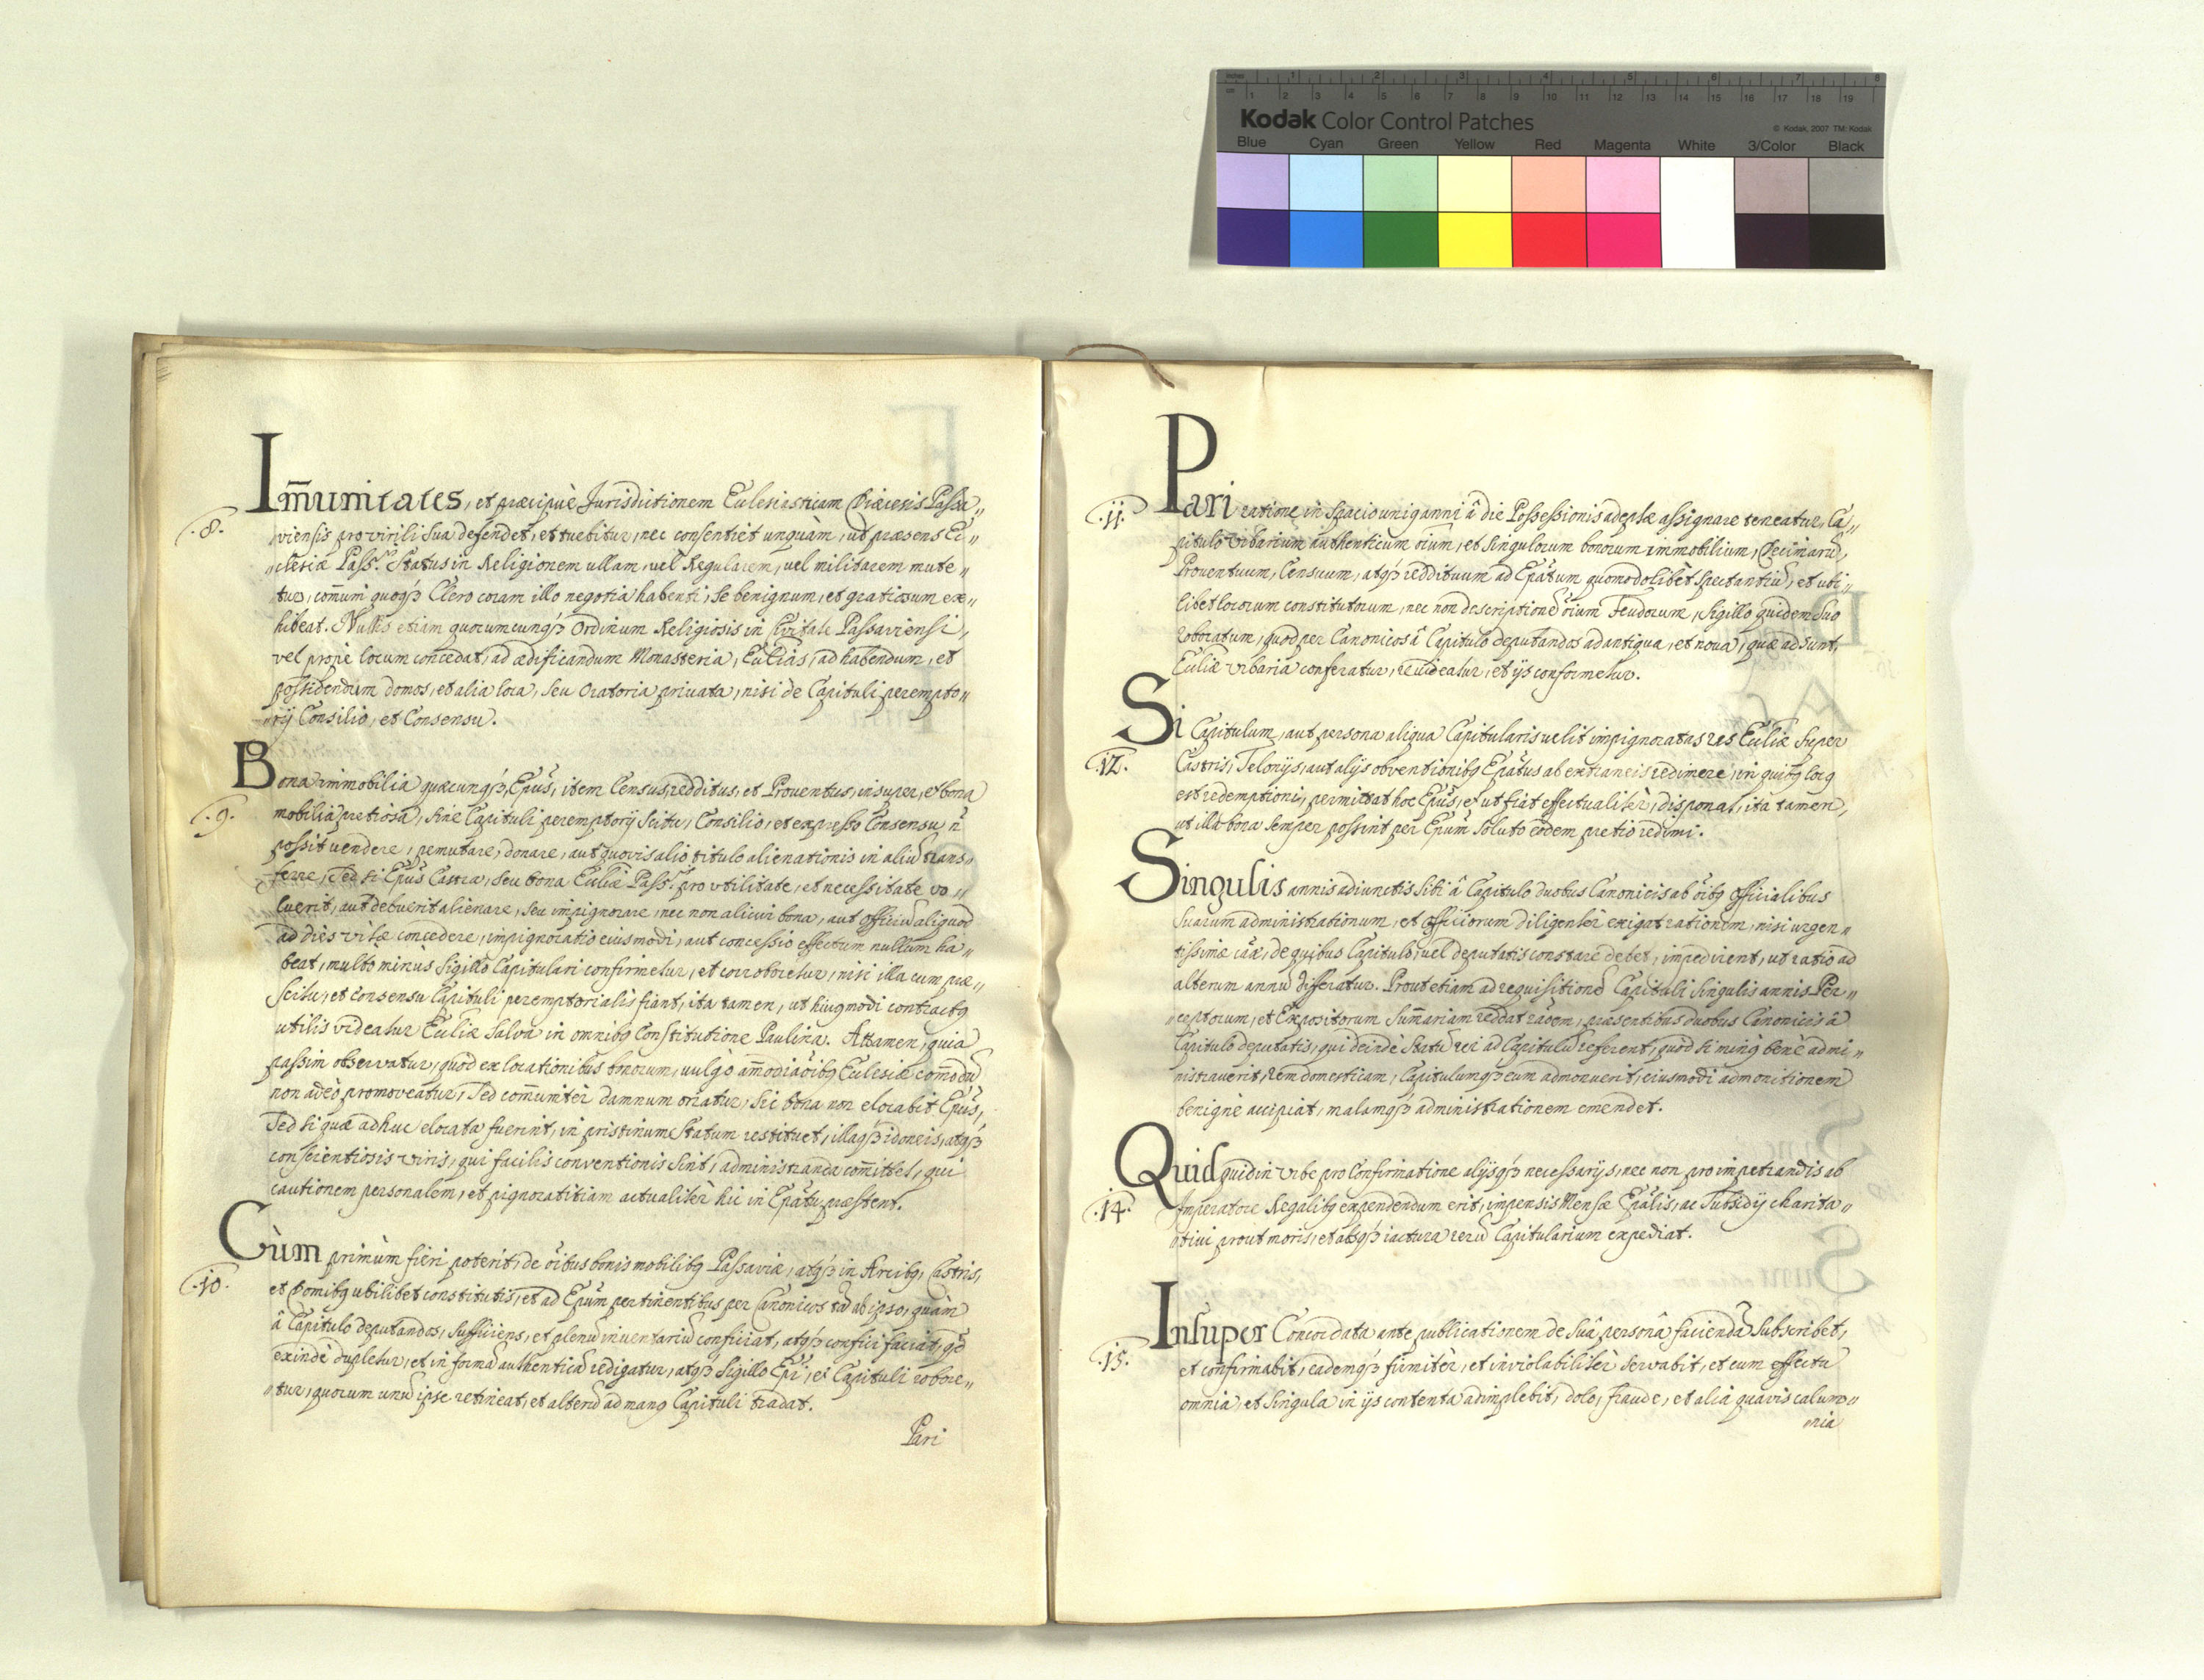 inches 1 2 3 4 5 6 7 8
cm 1 2 3 4 5 6 7 8 9 10 11 12 13 14 15 16 17 18 19
Kodak Color Control Patches © Kodak, 2007 TM: Kodak
Blue Cyan Green Yellow Red Magenta White 3/Color Black
Im̄unitates, et præcipuè Jurisdictionem Ecclesiasticam Diœcesis Passa„
.8. viensis pro virili sua defendet, et tuebitur, nec consentiet unquàm, ut præsens Ec„
„clesiæ Pass. Status in Religionem ullam, vel Regularem, vel militarem mute„
tur, com̄uni quoqꝫ Clero coram illo negotia habenti, se benignum, et gratiosum ex„
hibeat. Nullis etiam quorumcunqꝫ Ordinum Religiosis in Civitate Passaviensi,
vel propè locum concedat, ad ædificandum Monasteria, Ecclīas, ad habendum, et
possidendum domos, et alia loca, seu Oratoria privata, nisi de Capituli perempto„
„rij Consilio, et Consensu.
Bona immobilia quæcunqꝫ, Ep̄us, item Census, redditus, et Proventus, insuper, et bona
.9. mobilia pretiosa, sine Capituli peremptorij Scitu, Consilio, et expresso Consensu ñ
possit vendere, pemutare, donare, aut quovis alio titulo alienationis in aliū trans„
ferre, Sed si Ep̄us Castra, seu bona Ecclīæ Pass. pro vtilitate, et necessitate vo„
luerit, aut debuerit alienare, seu impignorare, nec non alicui bona, aut officiū aliquod
ad dies vitæ concedere, impignoratio eiusmodi, aut concessio effectum nullum ha„
beat, multò minùs Sigillo Capitulari confirmetur, et corroboretur, nisi illa cum præ„
scitu, et consensu Capituli peremptorialis fiant, ita tamen, ut huiꝯmodi contractꝯ
utilis videatur Ecclīæ salva in omnibꝯ Constitutione Paulina. Attamen, quia
passim observatur, quod ex locationibus bonorum, vulgò am̄odiāōibꝯ Ecclesiæ com̄odū
non adeò promoveatur, Sed com̄unitèr damnum oriatur, hic bona non elocabit Ep̄us,
Sed si quæ adhuc elocata fuerint, in pristinum Statum restituet, illaqꝫ idoneis, atqꝫ
conscientiosis viris, qui facilis conventionis sint, administranda com̄ittet, qui
cautionem personalem, et pignoratitiam actualitèr hic in Ep̄atu præstent.
Cùm primùm fieri poterit, de oībus bonis mobilibꝯ Passaviæ, atqꝫ in Arcibꝯ, Castris,
.10. et Domibꝯ ubilibet constitutis, et ad Ep̄um pertinentibus per Canonicos tā ab ipso, quàm
â Capitulo deputandos, sufficiens, et plenū inventariū conficiat, atqꝫ confici faciat, qd̄
exindè dupletur, et in formā authenticā redigatur, atqꝫ Sigillo Ep̄i, et Capituli robore„
„tur, quorum unū ipse retineat, et alterū ad manꝯ Capituli tradat.
Pari
Pari ratione in spacio uniꝯ anni â die Possessionis adeptæ assignare teneatur, Ca„
.11. pitulo Vrbarium authenticum oīum, et singulorum bonorum immobilium, Decimarū,
Proventuum, Censuum, atqꝫ reddituum ad Ep̄atum quomodolibet spectantiū, et ubi„
libet locorum constitutorum, nec non descriptionē oīum Feudorum, Sigillo quidem suo
roboratum, quod per Canonicos â Capitulo deputandos ad antiqua, et nova, quæ adsunt,
Ecclīæ vrbaria conferatur, revideatur, et ijs conformetur.
Si Capitulum, aut persona aliqua Capitularis velit impignoratas res Ecclīæ super
.12. Castris, Telonijs, aut alijs obventionibꝯ Ep̄atus ab extraneis redimere, in quibꝯ locꝯ
est redemptioni, permittat hoc Ep̄us, et ut fiat effectualitèr, disponat, ità tamen,
ut illa bona semper possint per Ep̄um soluto eodem pretio redimi.
Singulis annis adiunctis sibi â Capitulo duobus Canonicis ab oībꝯ officialibus
suarum administrationum, et officiorum diligentèr exigat rationem, nisi urgen„
tissimæ cāæ, de quibus Capitulo, vel deputatis constare debet, impedirent, ut ratio ad
alterum annū differatur. Prout etiam ad requisitionē Capituli singulis annis Per„
„ceptorum, et Expositorum Sum̄ariam reddat rāōem, præsentibus duobus Canonicis â
Capitulo deputatis, qui deindè statū rei ad Capitulū referent, quod si minꝯ benè admi„
nistraverit, rem domesticam, Capitulumqꝫ eum admonuerit, eiusmodi admonitionem
benignè accipiat, malamqꝫ administrationem emendet.
Quidquid in vrbe pro Confirmatione alijsqꝫ necessarijs, nec non pro impetrandis ab
.14. Imperatore Regalibꝯ expendendum erit, impensis Mensæ Ep̄alis, ac Subsidij charita„
„tivi prout moris, et absqꝫ iactura rerū Capitularium expediat.
Insuper Concordata ante publicationem de suâ personâ faciendā subscribet,
.15. et confirmabit, eademqꝫ firmitèr, et inviolabilitèr servabit, et cum effectu
omnia, et singula in ijs contenta adimplebit, dolo, fraude, et alia quavis calum„
„nia